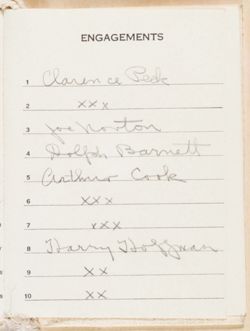 ENGAGEMENTS
1 Clarence Peck
2 xxx
3 Joe Norton
4 Dolph Barnett
5 Arthur Cook
6 xxx
7 xxx
8 Harry Hoffman
9 xx
10 xx